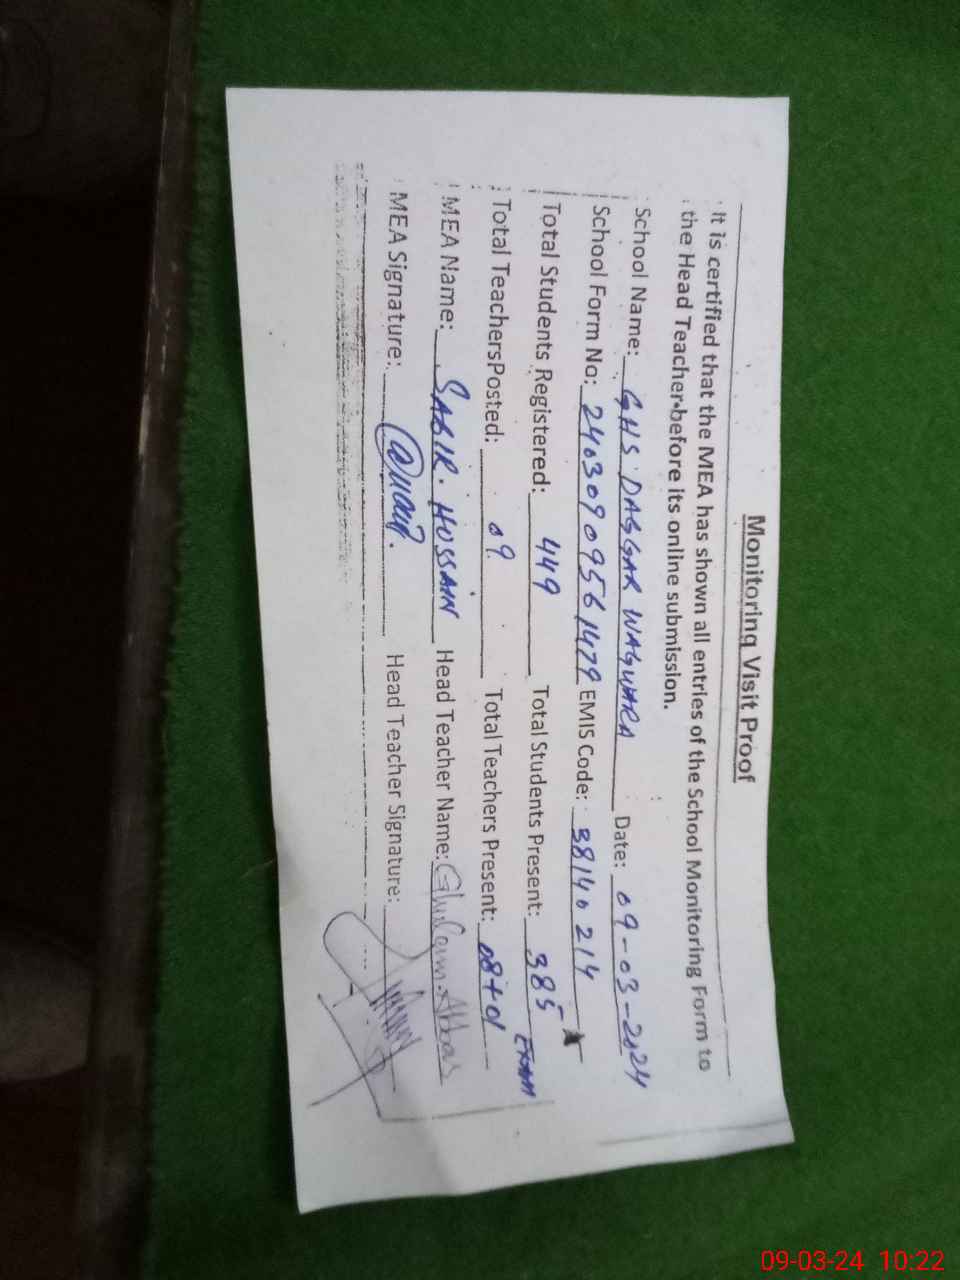 Monitoring Visit Proof
It is certified that the MEA has shown all entries of the School Monitoring Form to
the Head Teacher before its online submission.
School Name: GHS DAGGAR WAGWARA Date: 09-03-2024
School Form No: 24030909561479 EMIS Code: 38140214
Total Students Registered: 449 Total Students Present: 385
Total TeachersPosted: 09 Total Teachers Present: 08+01 Exam
MEA Name: SABIR HUSSAIN Head Teacher Name: Ghulam Abbas
MEA Signature: Head Teacher Signature:
09-03-24 10:22